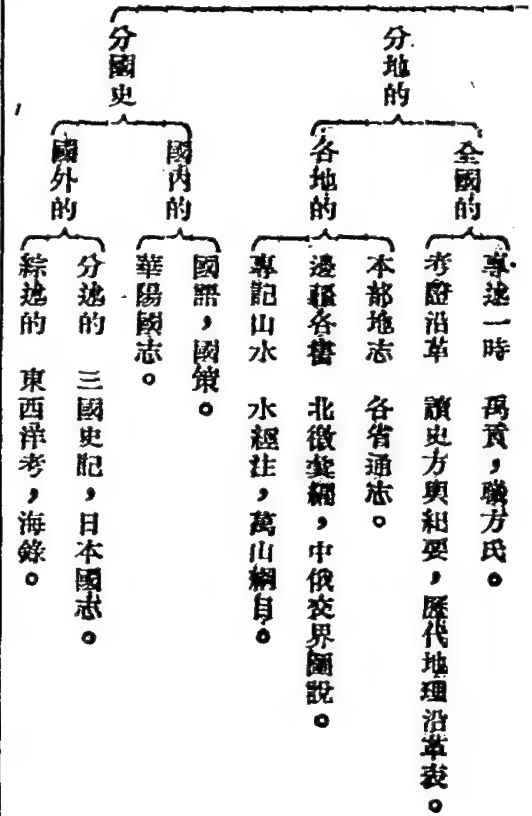 分地的
全國的
專述一時　禹貢，職方氏。
考證沿革　讀史方輿紀要，歷代地理沿革表。
各地的
本部地志　各省通志。
邊疆各書　北徼彙編，中俄交界圖說。
專記山水　水經注，萬山綱目。
分國史
國內的
國語，國策。
華陽國志。
國外的
分述的　三國史記，日本國志。
綜述的　東西洋考，海錄。